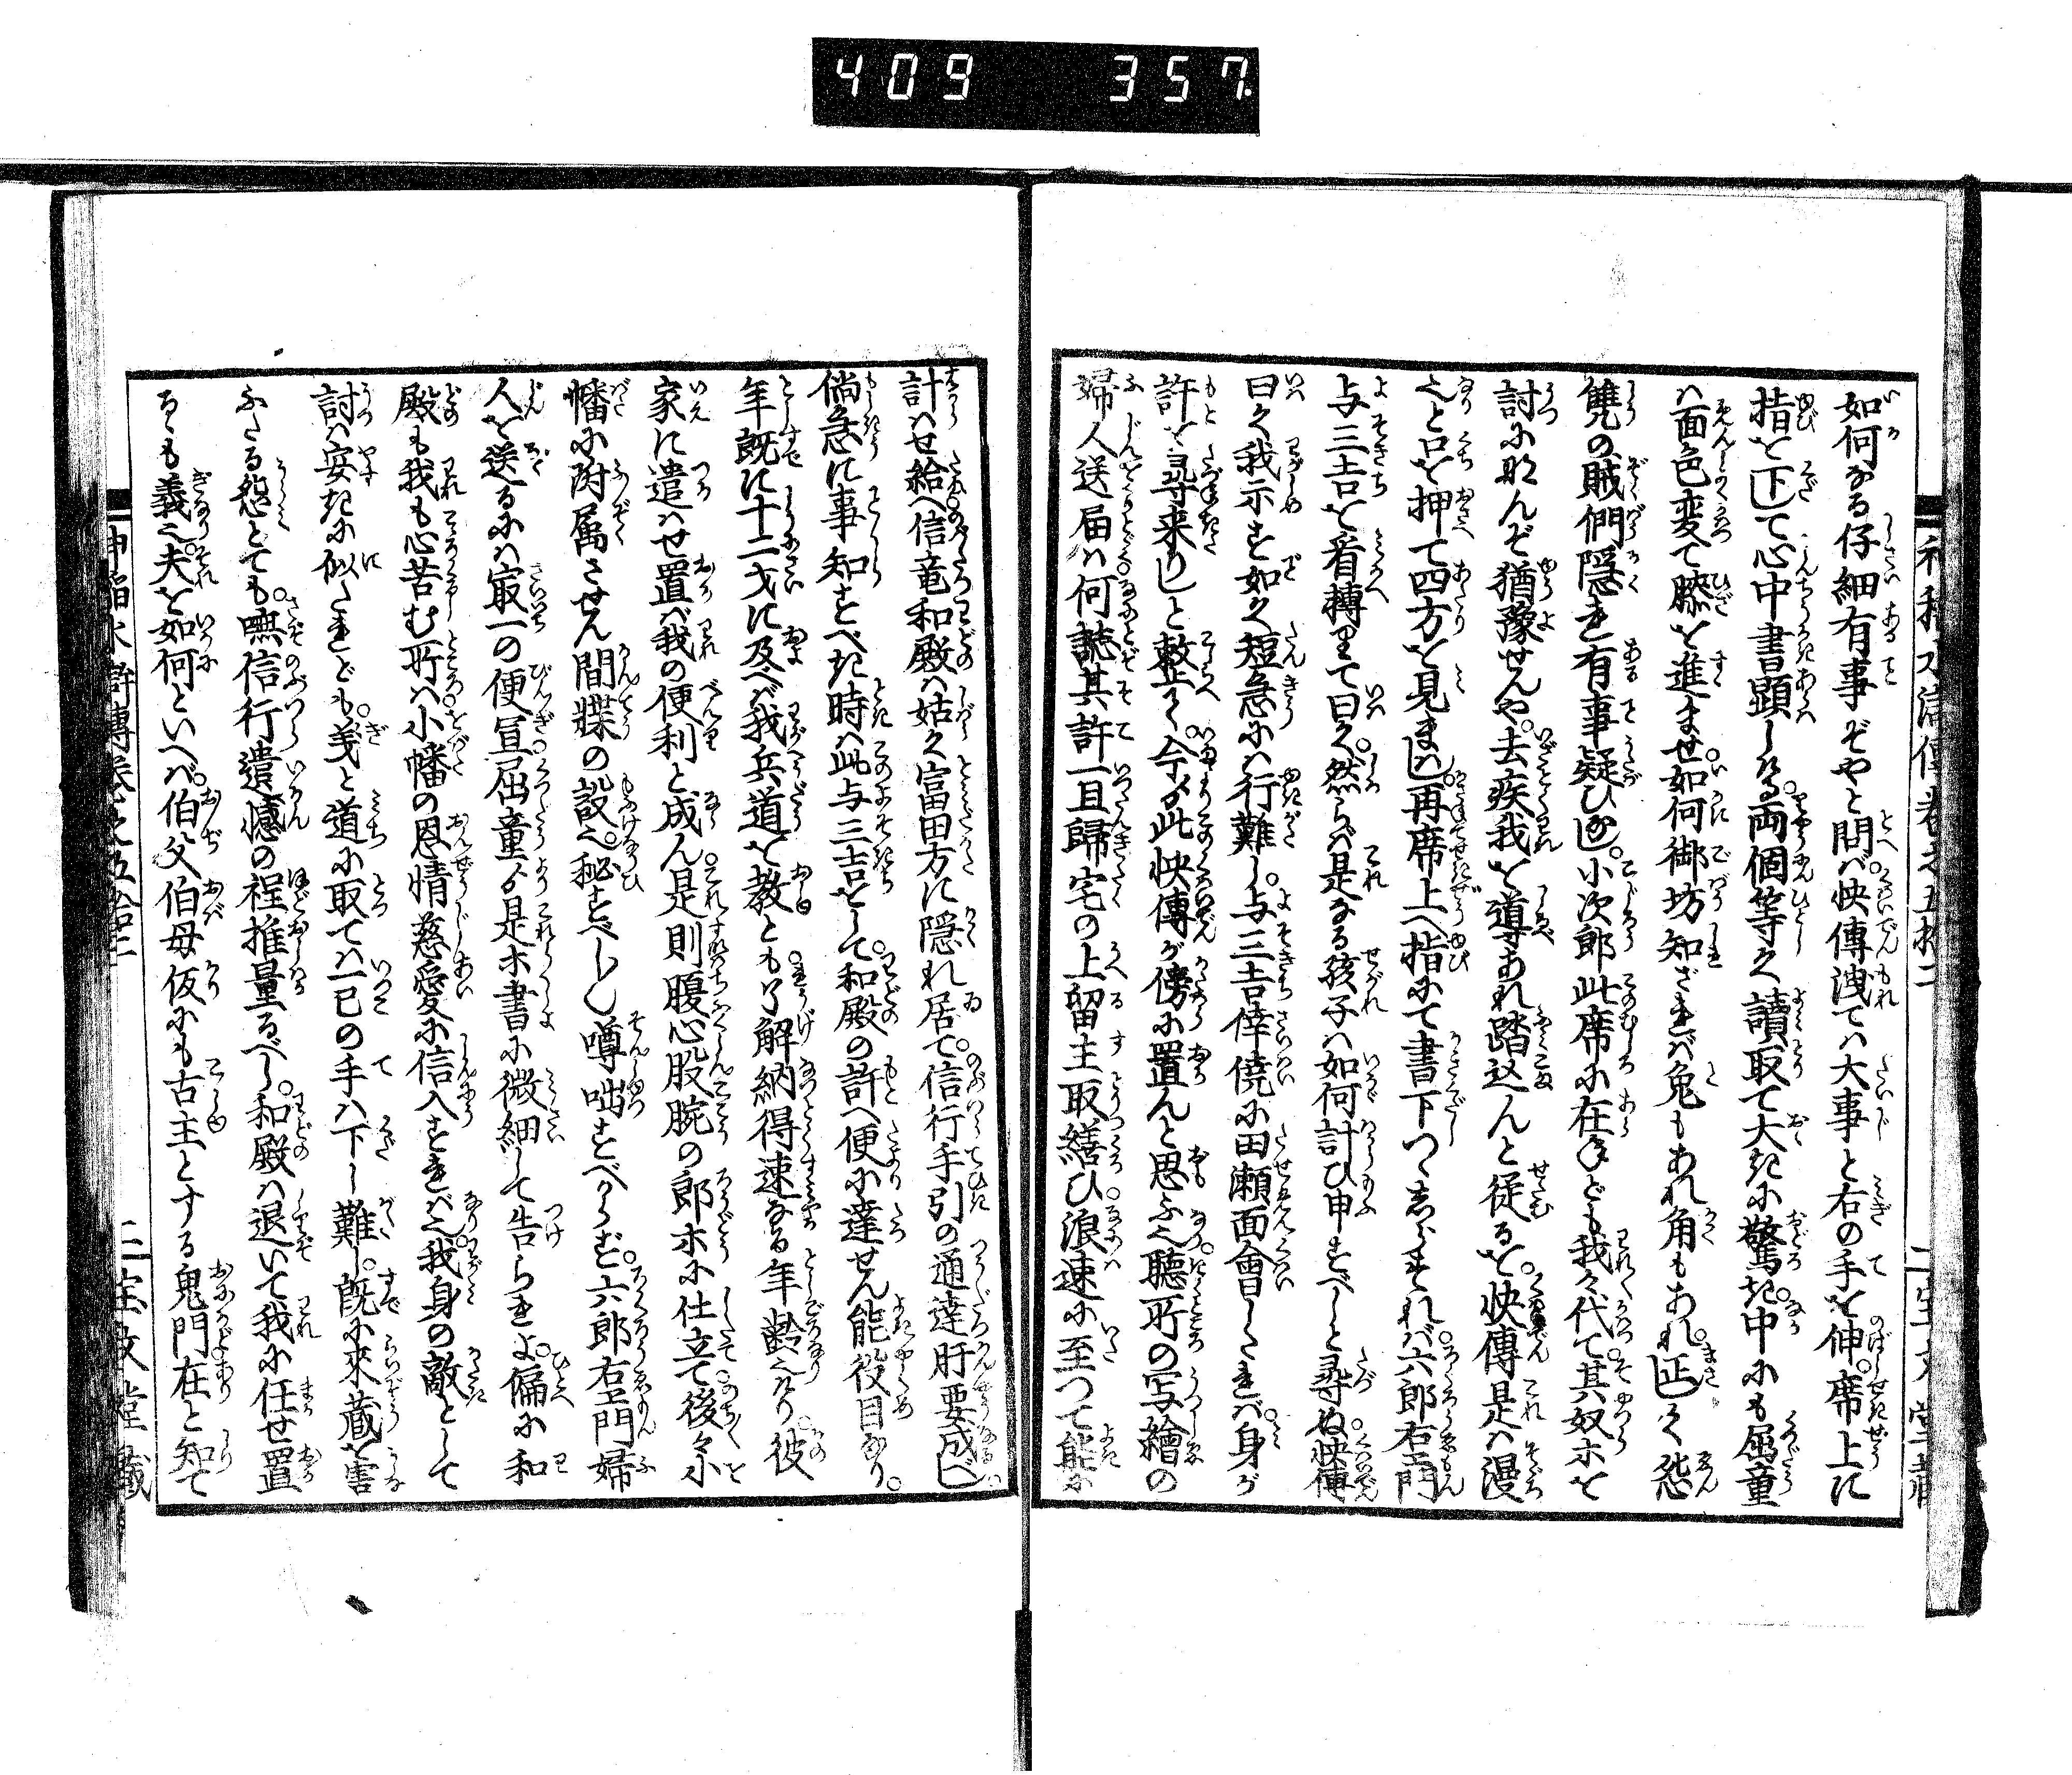 409 357
如何なる仔細有事ぞやと問ば快傳洩てハ大事と右の手を伸席上に
指を下して心中書顕しける両個等く讀取て大きに驚き中にも屈童
ハ面色変て膝を進ませ如何御坊知ざれバ兎もあれ角もあれ正しく怨
讐の賊們隠れ有事疑ひなし小次郎此席に在ねども我々代て其奴ホを
討に何んぞ猶豫せんや去疾我を導あれ踏込んと徒るを快傳是ハ漫
也と口を押て四方を見まはし再席上へ指にて書下つゝ志らすれバ六郎右エ門
与三吉を看轉りて曰く然らバ是なる孩子ハ如何計ひ申すべしと尋ぬ快傳
曰く我示すど如く短急にハ行難し与三吉倖僥に田瀬面會したれバ身が
許を尋来りしと整へ今より此快傳が傍に置んと思ふ也聴所の写繪の
婦人送届ハ何誌其許一旦歸宅の上留主取繕ひ浪速に至つて能に
計ハせ給へ信竜和殿ハ姑く富田方に隠れ居て信行手引の通達肝要成べし
倘急に事知すべき時ハ此与三吉をして和殿の許へ便に達せん能役目なり
年既に十二才に及べバ我兵道を教とも了解納得速なる年齢也けり彼
家に遣ハせ置バ我の便利と成ん是則腹心股腕の郎ホに仕立て後々小
幡に附属させん間諜の設也秘すべし〳〵噂咄すべからず六郎右エ門婦
人を送るにハ冣一の便宜屈童より是ホ書に微細して告られよ偏に和
殿も我も心苦む所ハ小幡の恩情慈愛に信入すれバ也我身の敵として
討ハ安きに似たれども義と道に取てハ一已の手ハ下し難し既に來蔵を害
ふたる怨とても嘸信行遺憾の程推量るべし和殿ハ退いて我に任せ置
るも義也夫を如何といへバ伯父伯母仮にも古主とする鬼門在と知て
三宝文堂藏